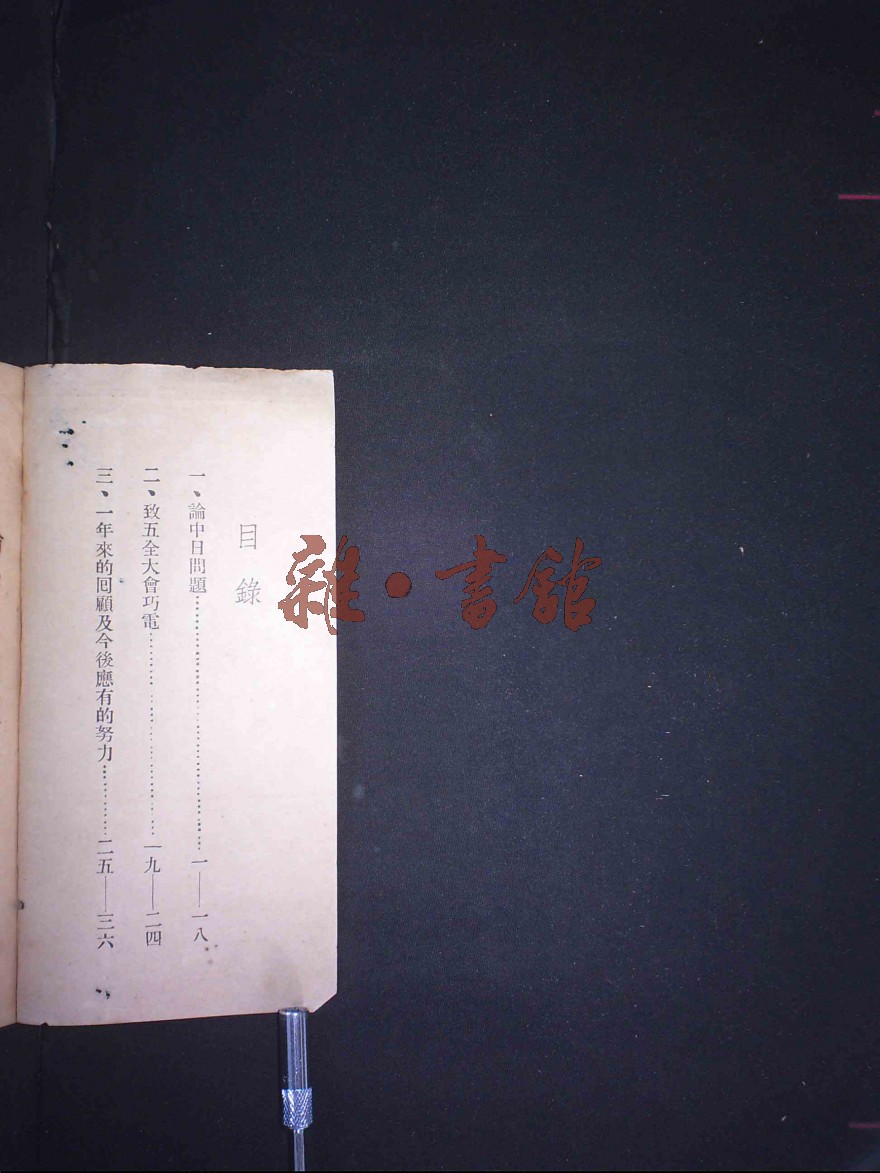 目錄
一、論中日問題……………………………一——一八
二、致五全大會巧電……………………一九——二四
三、一年來的回顧及今後應有的努力…………二五——三六
雜·書館